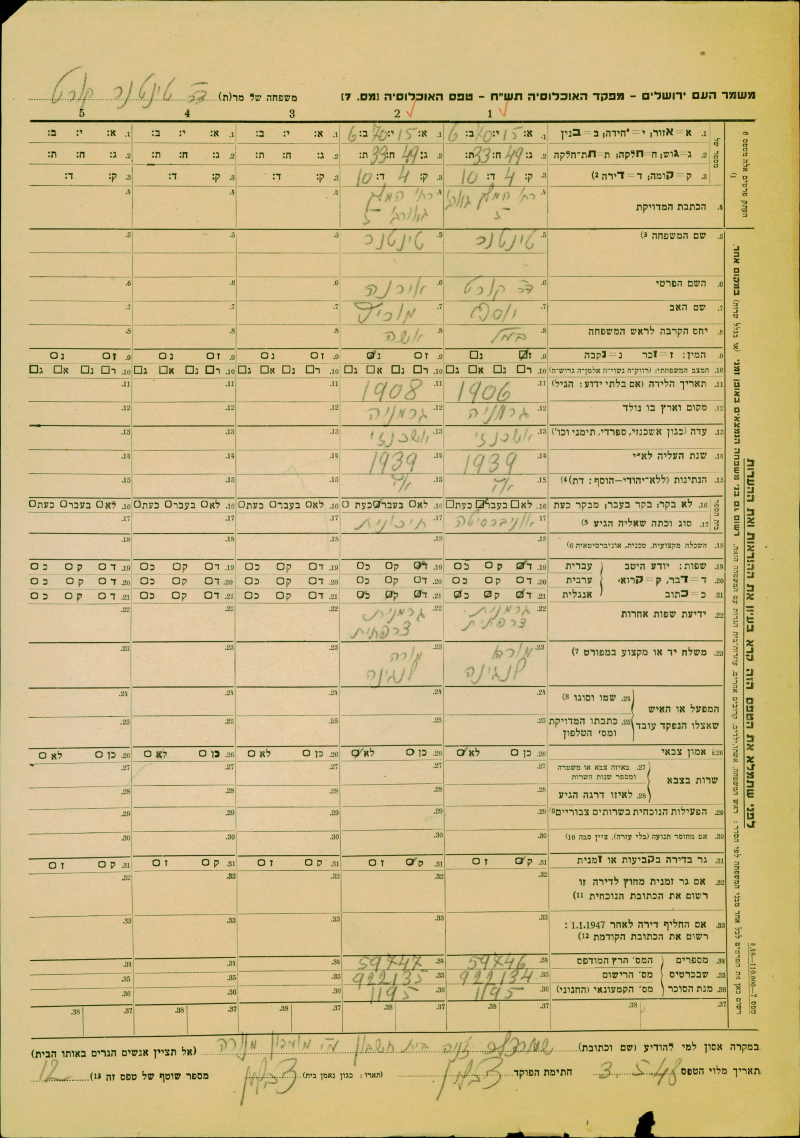 משמר העם ירושלים – מפקד האוכלוסיה תש"ח – טפס האוכלוסיה [מס. 7] משפחה של מר(ת) ד"ר טינטנר קורט
1 2 3 4 5
1. א=אזור; י=יחידה; ב=בנין 1. א: 15 י: 70 ב: 6 1. א: 15 י: 70 ב: 6 1. א: י: ב: 1. א: י: ב: 1. א: י: ב:
2. ג=גוש; ח=חלקה; ת=תת־חלקה 2. ג: 49 ח: 33 ת: 2. ג: 49 ח: 33 ת: 2. ג: ח: ת: 2. ג: ח: ת: 2. ג: ח: ת:
3. ק=קומה; ד=דירה (2 3. ק: 4 ד: 10 3. ק: 4 ד: 10 3. ק: ד: 3. ק: ד: 3. ק: ד:
4. הכתבת המדויקת
5. שם המשפחה (3 טינטנר טינטנר
6. השם הפרטי ד"ר קורט אירנה
7. שם האב יוסף מוריץ
8. יחס הקרבה לראש המשפחה בעל אשה
9. המין: ז=זכר נ=נקבה ז נ ז נ ז נ ז נ ז נ
10. המצב המשפחתי: (רווק־ה נשוי־ה אלמן־ה גרוש־ה) ר נ א ג ר נ א ג ר נ א ג ר נ א ג ר נ א ג
11. תאריך הלידה (אם בלתי ידוע: הגיל) 1906 1908
12. מקום וארץ בו נולד גרמניה גרמניה
13. עדה (כגון אשכנזי, ספרדי, תימני וכו') אשכנזי אשכנזי
14. שנת העליה לא"י 1939 1939
15. הנתינות (ללא־יהודי–הוסף: דת) (4 א"י א"י
בית הספר
16. לא בקר; בקר בעבר; מבקר כעת לא בעבר כעת לא בעבר כעת לא בעבר כעת לא בעבר כעת לא בעבר כעת
17. סוג וכתה שאליה הגיע (5 אוניברסיטה תיכונית
18. השכלה מקצועית, טכנית, אוניברסיטאית (6
19. שפות: יודע היטב עברית ד ק כ ד ק כ ד ק כ ד ק כ ד ק כ
20. ד=דבר, ק=קרוא, ערבית ד ק כ ד ק כ ד ק כ ד ק כ ד ק כ
21. כ=כתוב אנגלית ד ק כ ד ק כ ד ק כ ד ק כ ד ק כ
22. ידיעת שפות אחרות גרמנית צרפתית גרמנית צרפתית
23. משלח יד או מקצוע במפורט (7 מורה לנגינה מורה לנגינה
המפעל או האיש שאצלו הנפקד עובד
24. שמו וסוגו (8
25. כתבתו המדויקת ומס' הטלפון
26. אמון צבאי כן לא כן לא כן לא כן לא כן לא
שרות בצבא
27. באיזה צבא או משטרה ומספר שנות השרות
28. לאיזו דרגה הגיע
29. הפעילות הנוכחית בשרותים צבוריים (9
30. אם מחוסר תנועה (בלי עזרה), ציין סבה (10
31. גר בדירה בקביעות או זמנית ק ז ק ז ק ז ק ז ק ז
32. אם גר זמנית מחוץ לדירה זו רשום את הכתובת הנוכחית (11
33. אם החליף דירה לאחר 1.1.1947: רשום את הכתבת הקודמת (12
מספרים שבכרטיס מנת הסוכר
34. המס' הרץ המודפס 59746 59747
35. מס' הרישום 922134 922135
36. מס' הקמעונאי (החנוני) 1195 1195
37. 38. 37. 38. 37. 38. 37. 38. 37. 38.
במקרה אסון למי להודיע (שם וכתובת) (אל תציין אנשים הגרים באותו הבית)
תאריך מלוי הטפס 3.5.48 חתימת הפוקד (תארו: כגון נאמן בית) מספר שוטף של טפס זה (13 12
לפני שתמלא את הטפס הזה קרא בעיון את ההוראות ואת ההערות